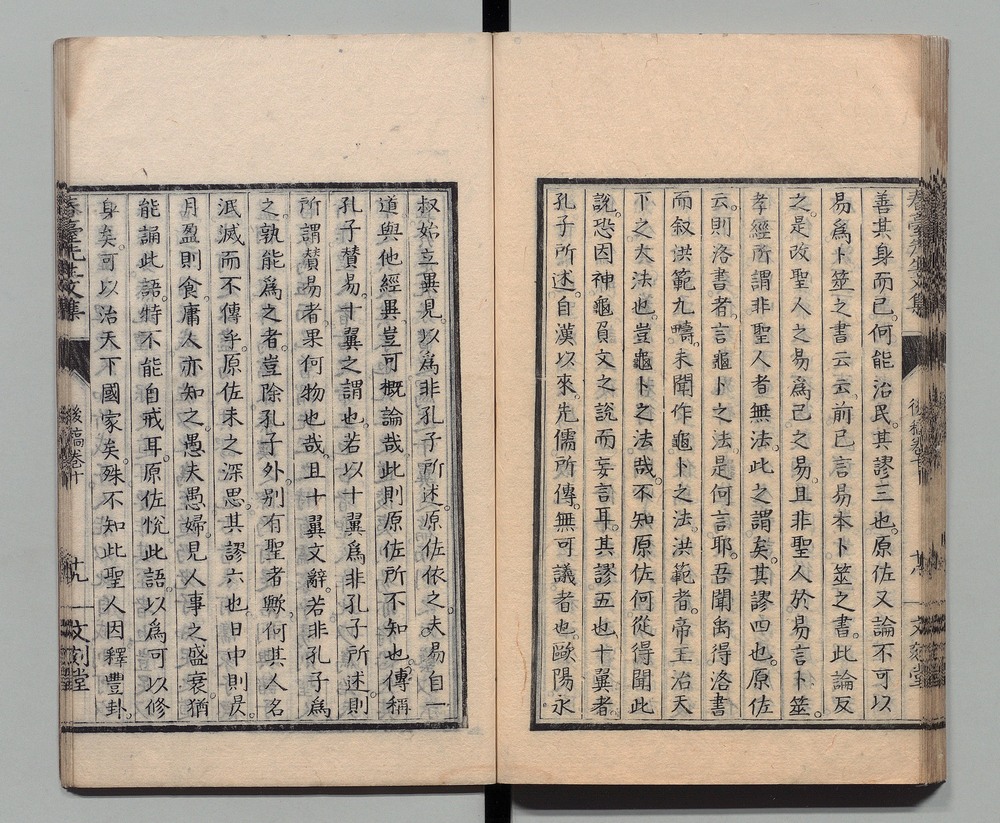 善其身而已。何能治民。其謬三也。原佐又論不可以
易爲卜筮之書云云。前已言易本卜筮之書。此論反
之。是改聖人之易爲己之易。且非聖人於易言卜筮。
孝經所謂非聖人者無法。此之謂矣。其謬四也。原佐
云。則洛書者。言龜卜之法。是何言耶。吾聞禹得洛書
而叙洪範九疇。未聞作龜卜之法。洪範者。帝王治天
下之大法也。豈龜卜之法哉。不知原佐何從得聞此
說。恐因神龜負文之說而妄言耳。其謬五也。十翼者。
孔子所述。自漢以來。先儒所傳。無可議者也。歐陽永
叔始立異見。以爲非孔子所述。原佐依之。夫易自一
道與他經異。豈可概論哉。此則原佐所不知也。傳稱
孔子贊易。十翼之謂也。若以十翼爲非孔子所述。則
所謂贊易者果何物也哉。且十翼文辭。若非孔子爲
之。孰能爲之者。豈除孔子外。別有聖者歟。何其人名
泯滅而不傳乎。原佐未之深思。其謬六也。日中則昃
月盈則食。庸人亦知之。愚夫愚婦。見人事之盛衰。猶
能誦此語。特不能自戒耳。原佐悅此語。以爲可以修
身矣。可以治天下國家矣。殊不知此聖人因釋豐卦。
春臺先生文集
後稿卷十
十九
文刻堂